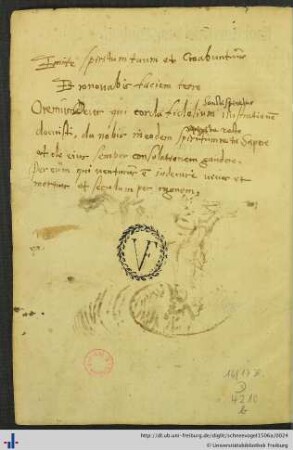 Emitte spiritum tuum et Creabuntur
Et renovabis faciem terre
Oremus Deus qui corda fidelium Sancti Spiritus illustratione
docuisti, da nobis in eodem spiritu recta Sapere
et de eius semper consolatione gaudere.
Per eum qui venturus e iudicare vivos et
mortuos et seculum per ignem.
VF
D
4210
b
http://dl.ub.uni-freiburg.de/diglit/schrenvogel1506a/0024
© Universitätsbibliothek Freiburg